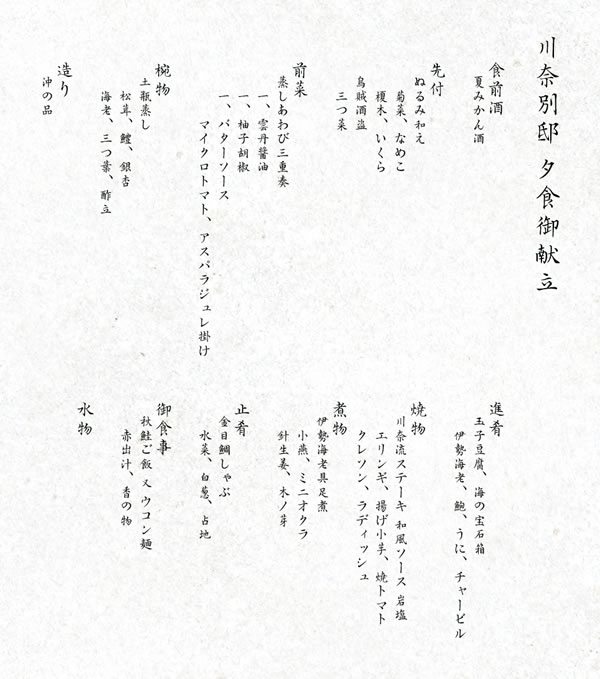 川奈別邸 夕食御献立
食前酒
夏みかん酒
先付
ぬるみ和え
菊菜、なめこ
榎木、いくら
烏賊酒盗
三つ菜
前菜
蒸しあわび三重奏
一、雲丹醤油
一、柚子胡椒
一、バターソース
マイクロトマト、アスパラジュレ掛け
椀物
土瓶蒸し
松茸、鱧、銀杏
海老、三つ葉、酢立
造り
沖の品
進肴
玉子豆腐、海の宝石箱
伊勢海老、鮑、うに、チャービル
焼物
川奈流ステーキ 和風ソース 岩塩
エリンギ、揚げ小芋、焼トマト
クレソン、ラディッシュ
煮物
伊勢海老具足煮
小蕪、ミニオクラ
針生姜、木ノ芽
止肴
金目鯛しゃぶ
水菜、白葱、占地
御食事
秋鮭ご飯 又 ウコン麺
赤出汁、香の物
水物